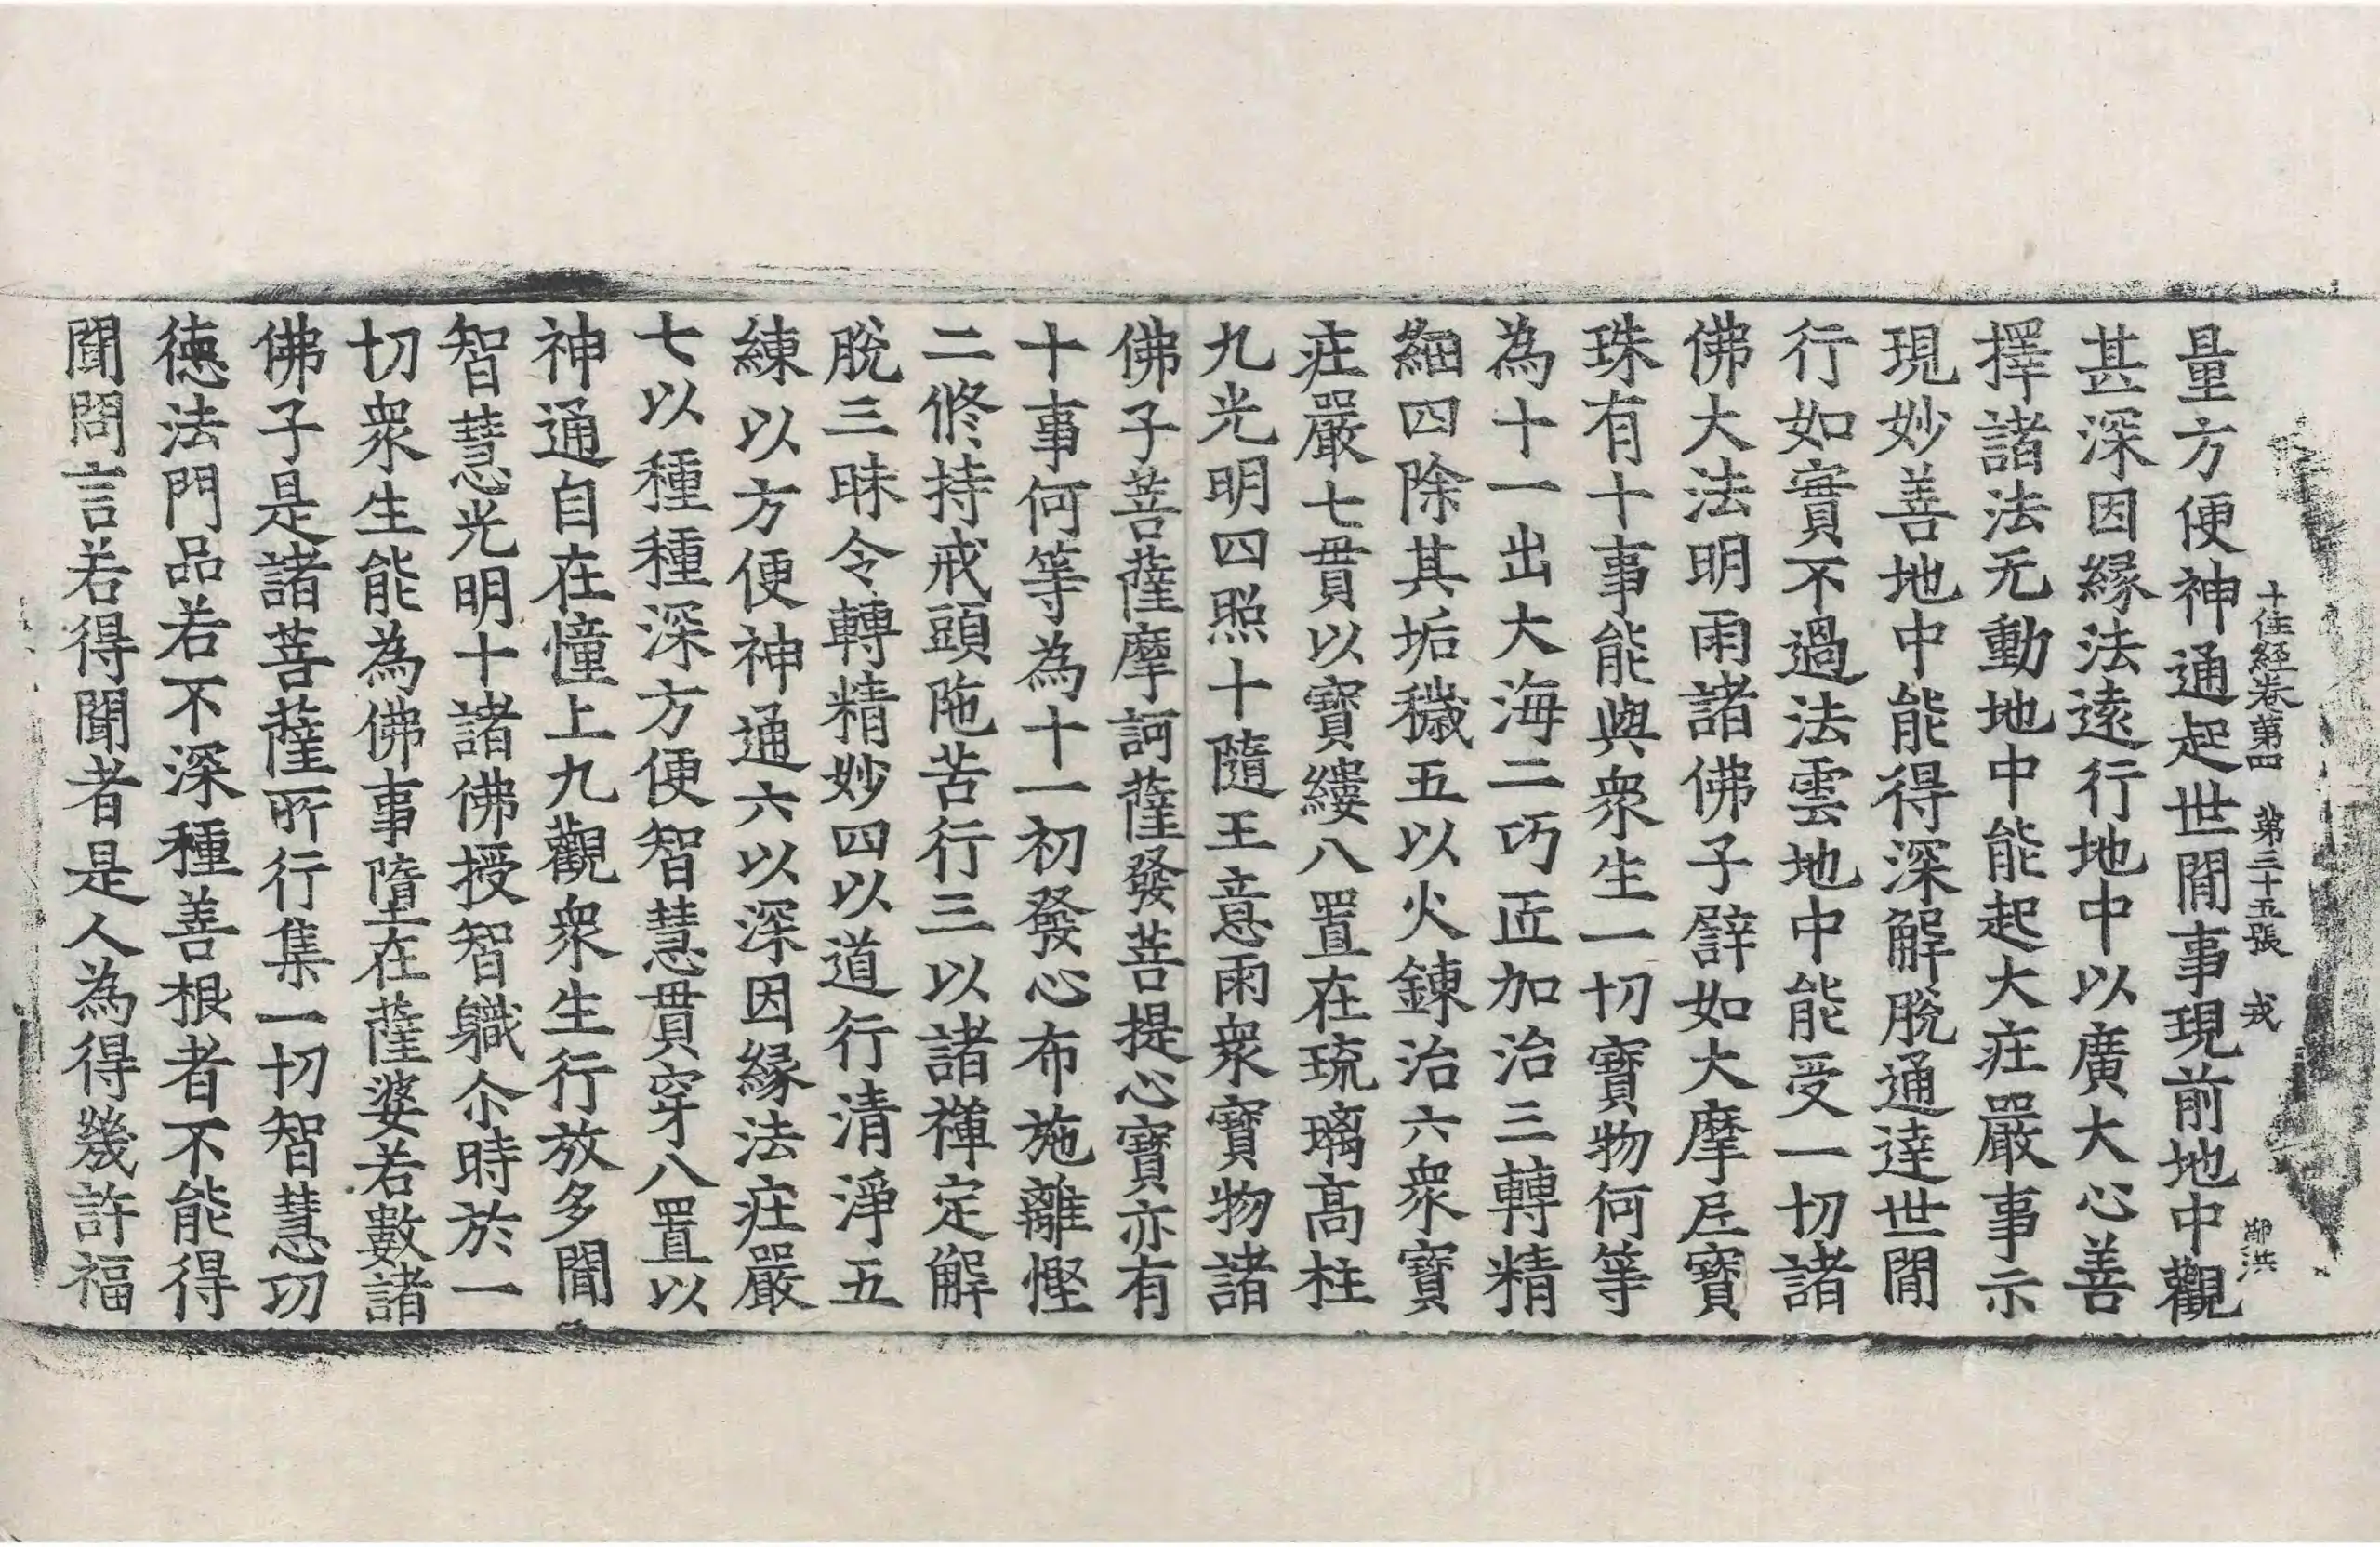 十住經卷第四 第三十五張 戎 鄭洪
量方便神通起世間事現前地中觀
甚深因緣法遠行地中以廣大心善
擇諸法无動地中能起大庄嚴事示
現妙善地中能得深解脫通達世間
行如實不過法雲地中能受一切諸
佛大法明雨諸佛子譬如大摩尼寶
珠有十事能與衆生一切寶物何等
為十一出大海二巧匠加治三轉精
細四除其垢穢五以火鍊治六衆寶
庄嚴七貫以寶縷八置在琉璃高柱
九光明四照十隨王意雨衆寶物諸
佛子菩薩摩訶薩發菩提心寶亦有
十事何等為十一初發心布施離慳
二修持戒頭陁苦行三以諸禪定解
脫三昧令轉精妙四以道行清淨五
練以方便神通六以深因緣法庄嚴
七以種種深方便智慧貫穿八置以
神通自在憧上九觀衆生行放多聞
智慧光明十諸佛授智職尒時於一
切衆生能為佛事墮在薩婆若數諸
佛子是諸菩薩所行集一切智慧功
德法門品若不深種善根者不能得
聞問言若得聞者是人為得幾許福